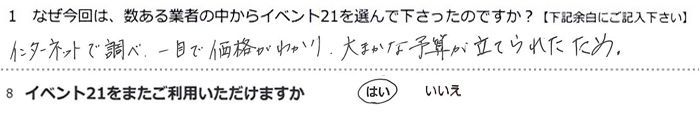 1 なぜ今回は、数ある業者の中からイベント21を選んで下さったのですか？【下記余白にご記入下さい】
インターネットで調べ、一目で価格がわかり、大まかな予算が立てられたため。
8 イベント21をまたご利用いただけますか はい いいえ